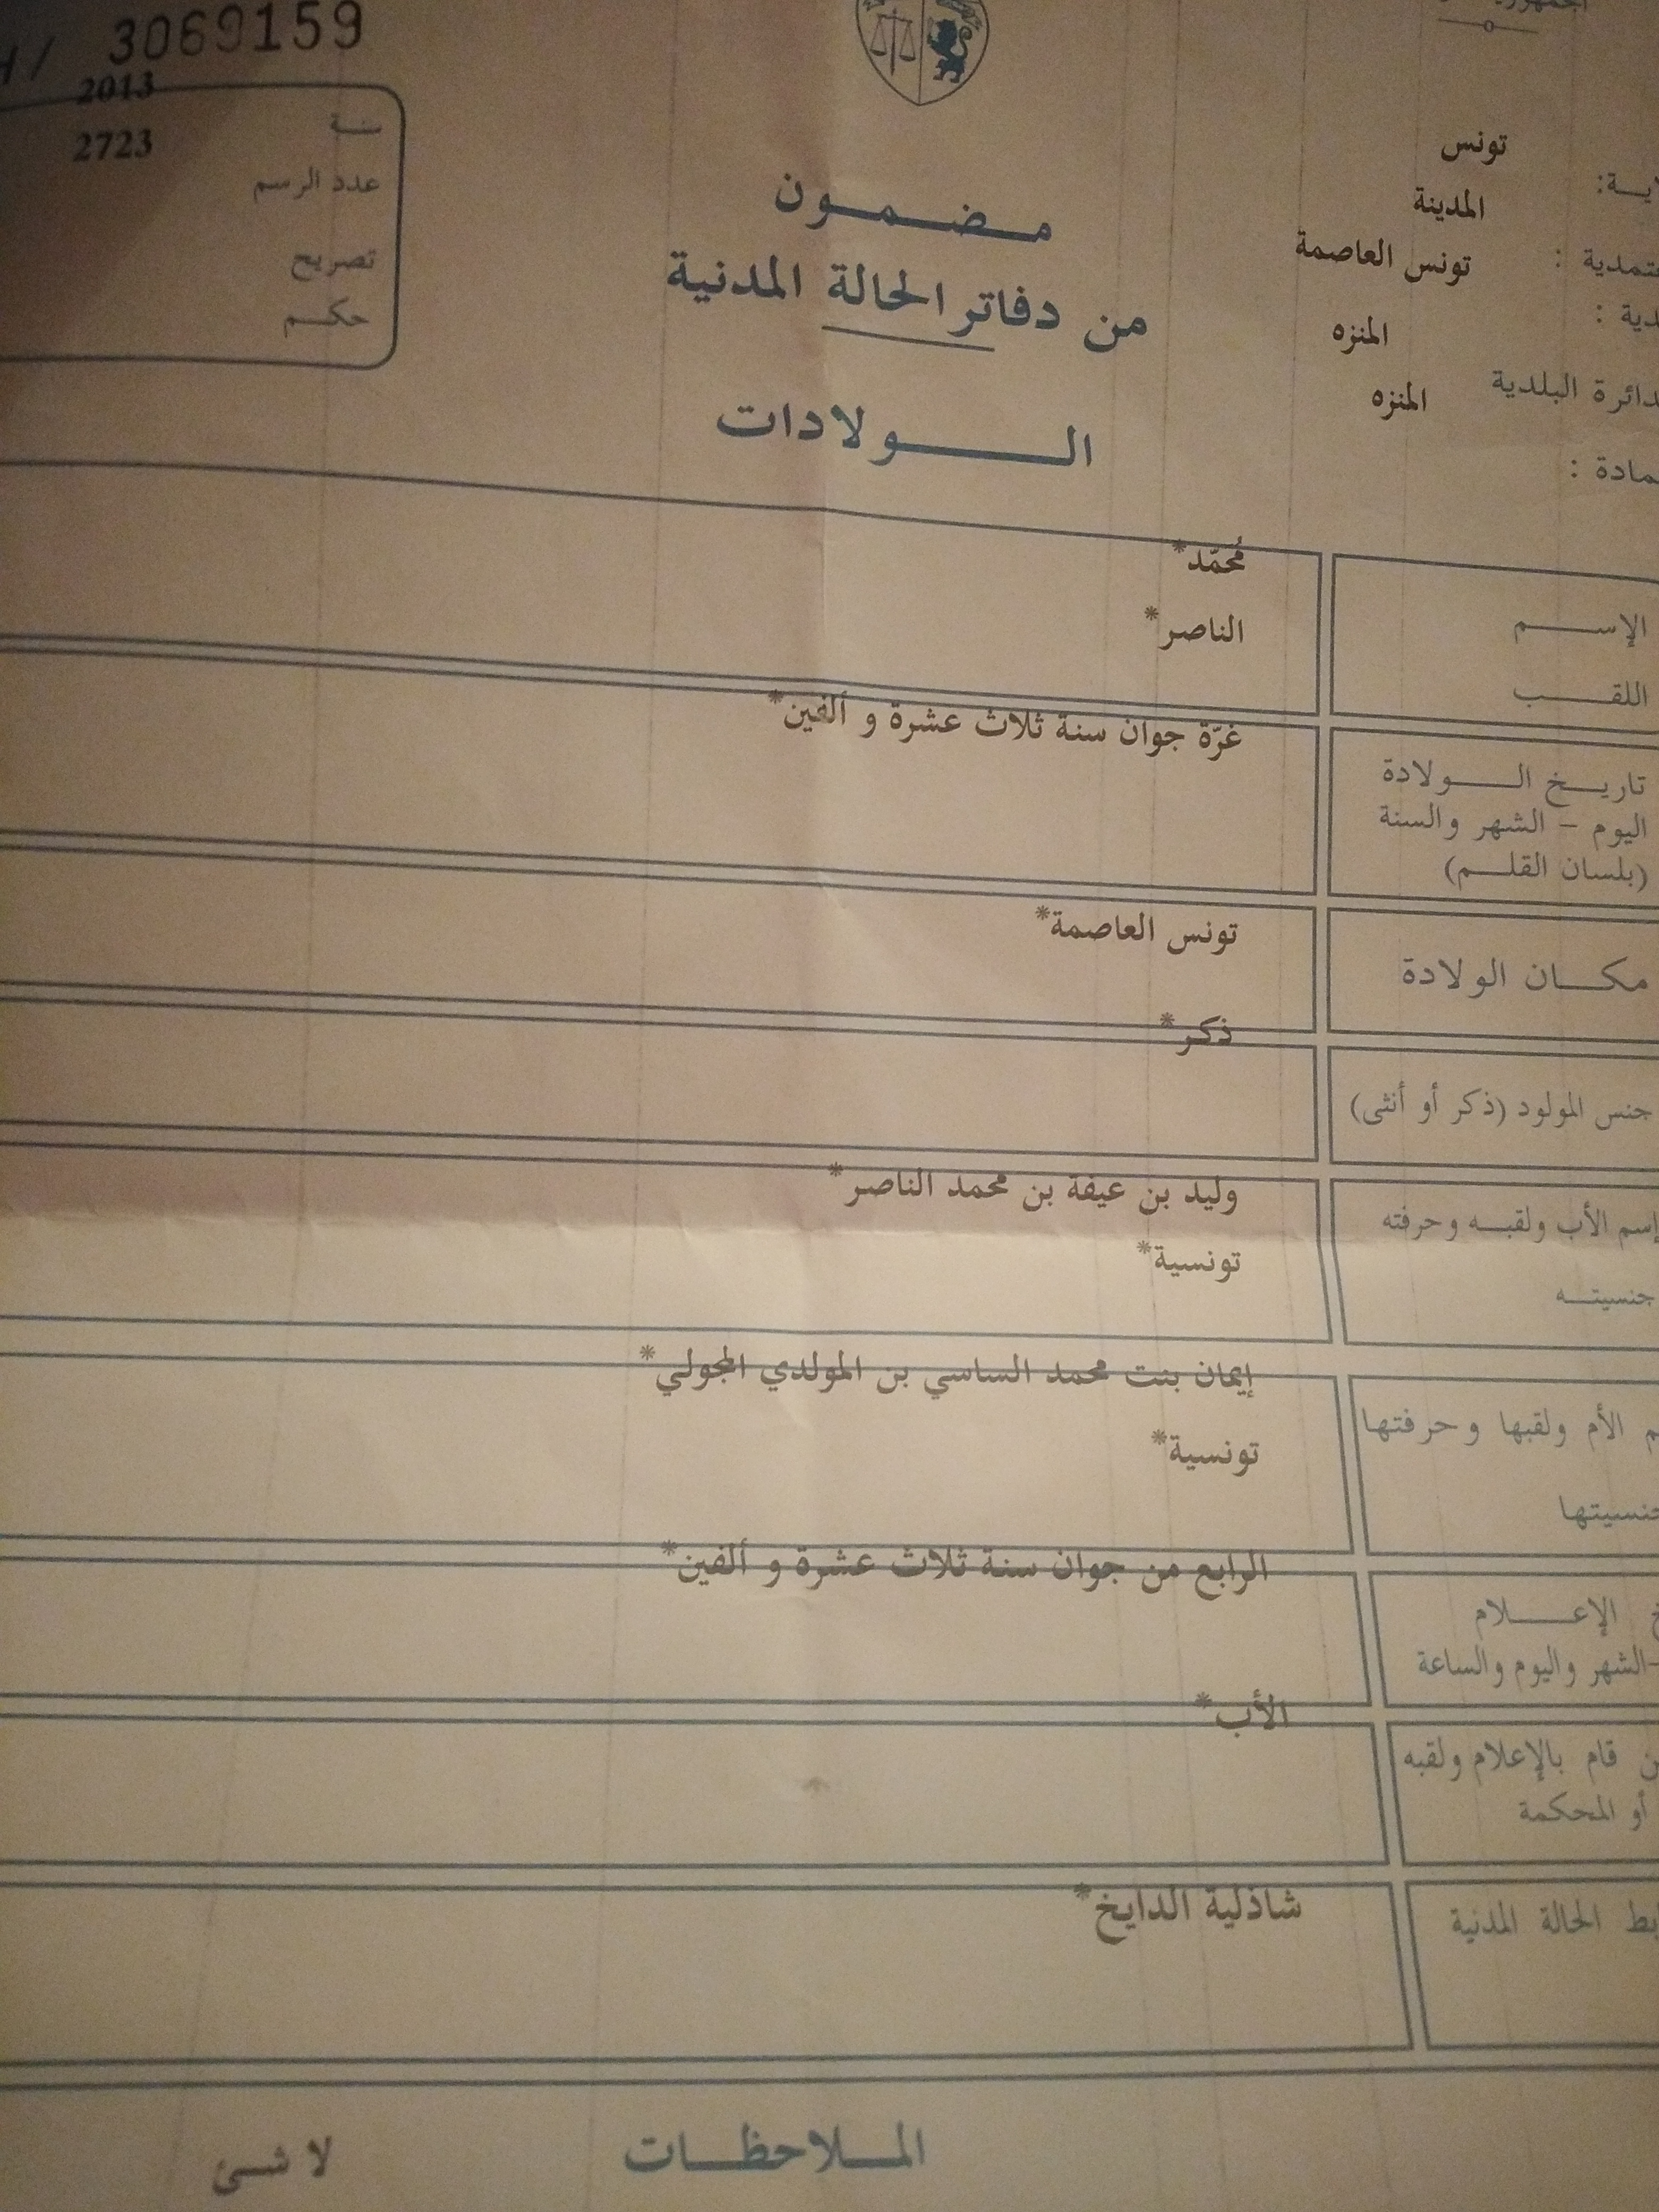 3069159
2013
سنة
2723
عدد الرسم
تصريح
حكم
تونس
المدينة
تونس العاصمة
المنزه
دائرة البلدية
المنزه
مضمون
من دفاتر الحالة المدنية
الولادات
مُحمّد*
الإسم
الناصر*
اللقب
غرّة جوان سنة ثلاث عشرة و ألفين*
تاريخ الولادة
اليوم - الشهر والسنة
(بلسان القلم)
تونس العاصمة*
مكان الولادة
ذكر*
جنس المولود (ذكر أو أنثى)
وليد بن عيفة بن محمد الناصر*
إسم الأب ولقبه وحرفته
تونسية*
جنسيته
إيمان بنت محمد الساسي بن المولدي المجولي*
الأم ولقبها وحرفتها
تونسية*
جنسيتها
الرابع من جوان سنة ثلاث عشرة و ألفين*
الإعلام
-الشهر واليوم والساعة
الأب*
قام بالإعلام ولقبه
أو المحكمة
شاذلية الدايخ*
الحالة المدنية
الملاحظات
لا شئ